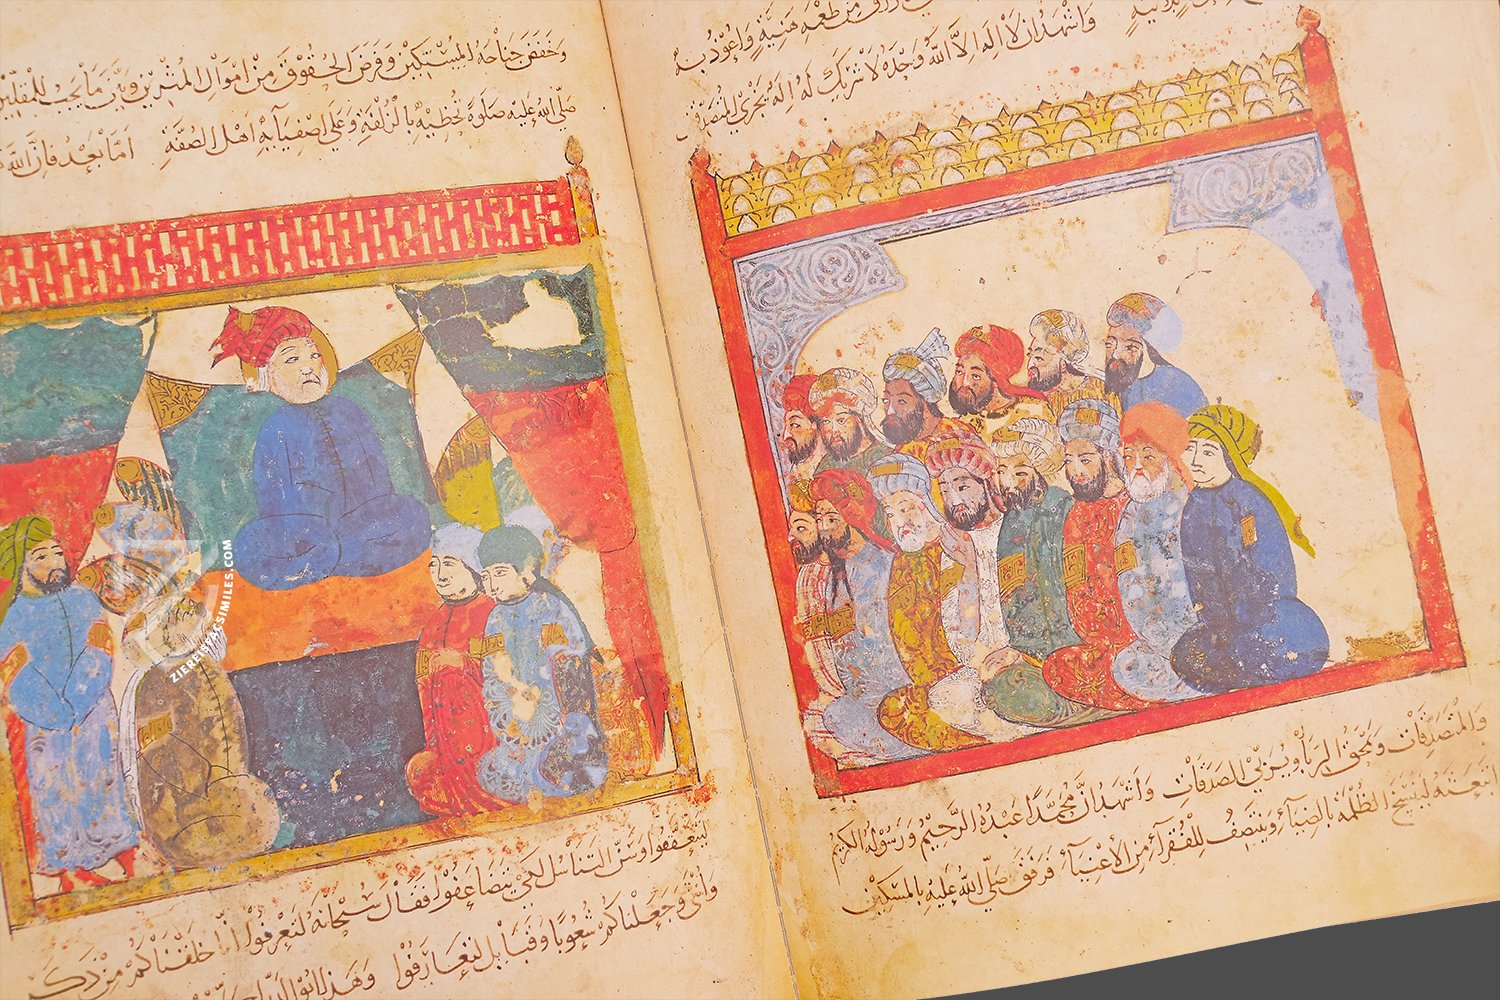 من طعمه هنية واعوذ به
واشهد ان لا اله الا الله وحده لا شريك له اله يجزي المتصدقين
والمتصدقات ويمحق الربا ويربي الصدقات واشهد ان محمدا عبده الرحيم ورسوله الكريم
ابتعثه لينسخ الظلمة بالضياء وينتصف للفقراء من الأغنياء فرفق صلى الله عليه بالمسكين
وخفض جناحه للمستكين وفرض الحقوق من اموال المثرين وبين ما يجب للمقلين
صلى الله عليه صلوة تحظيه بالزلفة وعلى اصفيائه اهل الصفة اما بعد فان الله
ليتعففوا وسن التناسل لكي يتضاعفوا فقال سبحانه لتعرفوا انا خلقناكم من ذكر
وانثى وجعلناكم شعوبا وقبائل لتعارفوا وهذا ابو الدراج
ZIEREISFACSIMILES.COM